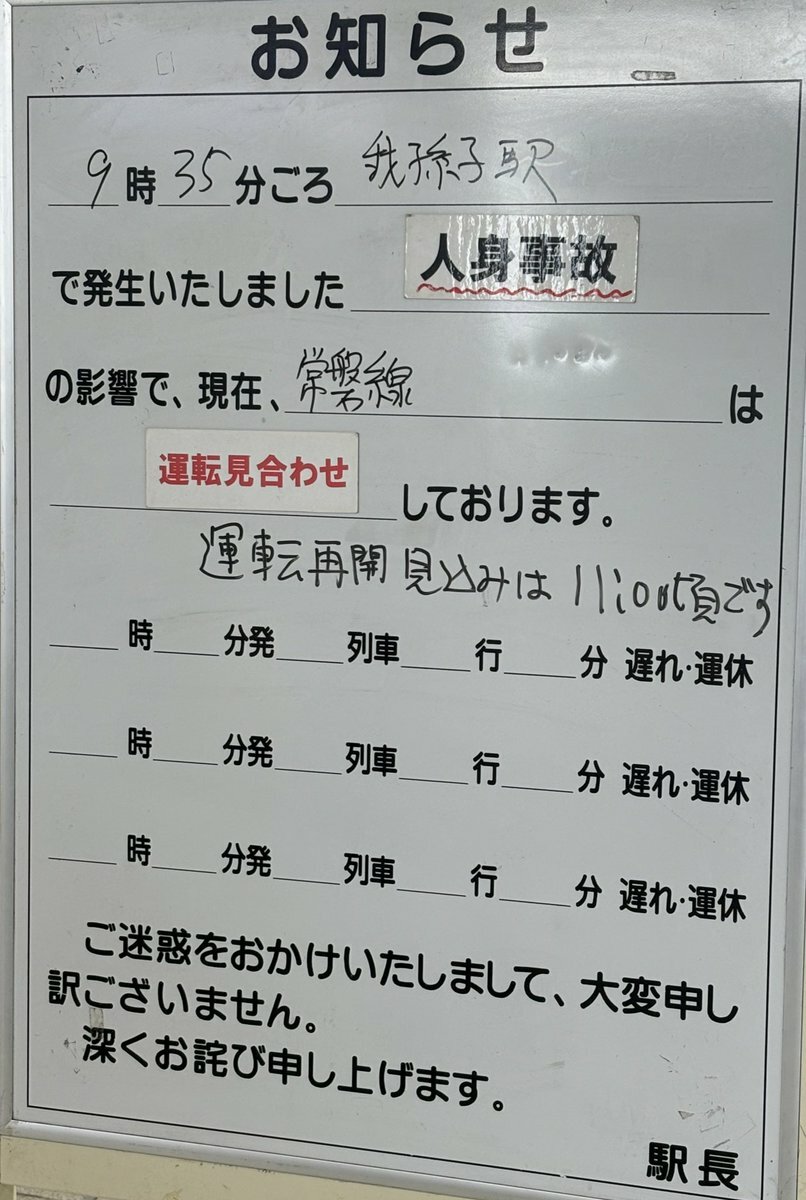 お知らせ
9時35分ごろ 我孫子駅
で発生いたしました 人身事故
の影響で、現在、常磐線 は
運転見合わせ しております。
運転再開見込みは11:00頃です
___時___分発___列車___行___分 遅れ・運休
___時___分発___列車___行___分 遅れ・運休
___時___分発___列車___行___分 遅れ・運休
ご迷惑をおかけいたしまして、大変申し
訳ございません。
深くお詫び申し上げます。
駅長